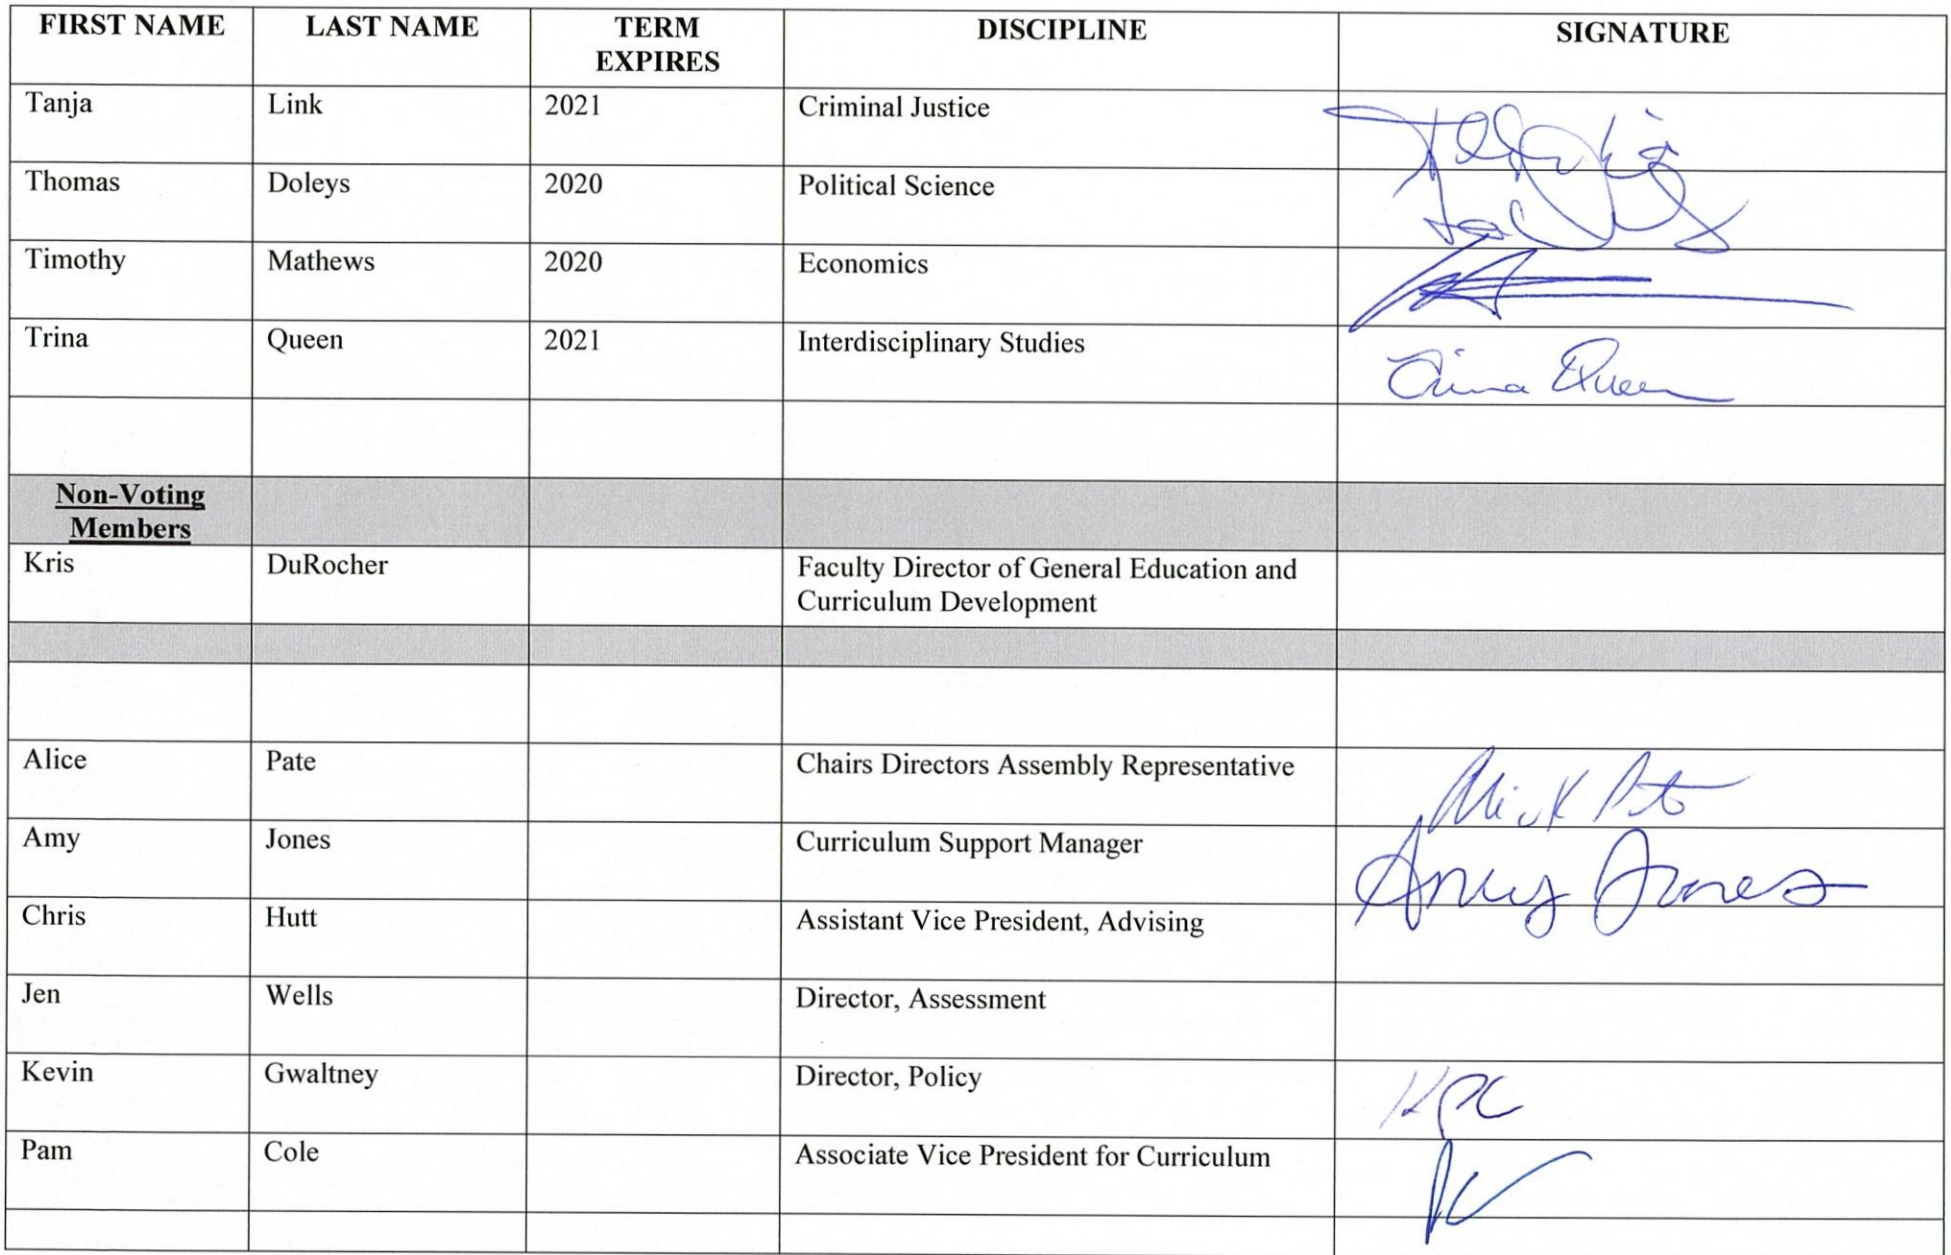 FIRST NAME LAST NAME TERM EXPIRES DISCIPLINE SIGNATURE
Tanja Link 2021 Criminal Justice
Thomas Doleys 2020 Political Science
Timothy Mathews 2020 Economics
Trina Queen 2021 Interdisciplinary Studies Trina Queen
Non-Voting
Members
Kris DuRocher Faculty Director of General Education and
Curriculum Development
Alice Pate Chairs Directors Assembly Representative
Amy Jones Curriculum Support Manager Amy Jones
Chris Hutt Assistant Vice President, Advising
Jen Wells Director, Assessment
Kevin Gwaltney Director, Policy
Pam Cole Associate Vice President for Curriculum